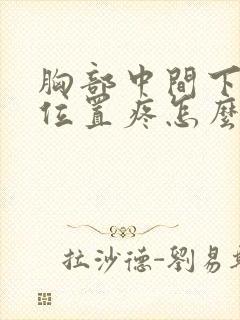 胸部中間下
位置疼怎麼
拉沙德-劉易